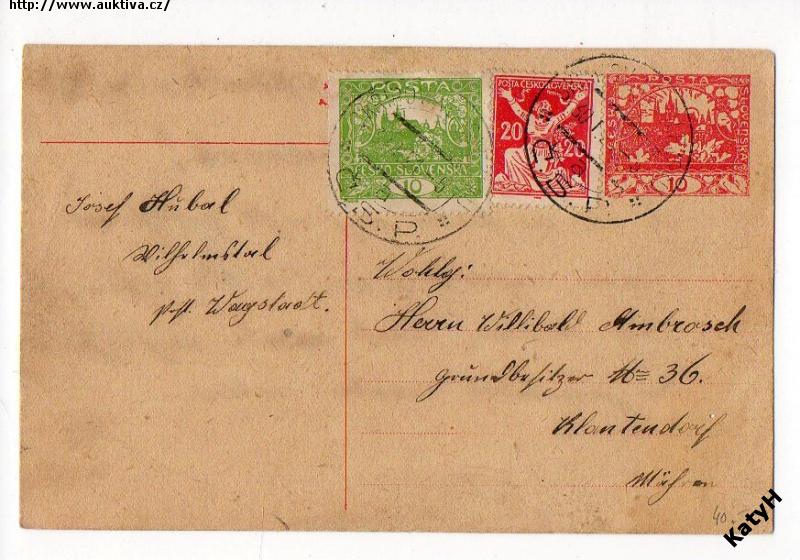 http://www.auktiva.cz/
POSTA
ČESKO SLOVENSKÁ
10
POSTA ČESKOSLOVENSKÁ
20 20
POSTA
ČESKO SLOVENSKÁ
10
Josef Hubal
Wilhelmstal
Post. Wagstadt.
Wohlg:
Herrn Willibald Ambrosch
Grundbesitzer No 36.
Klantendorf
Mähren
40.-
KatyH